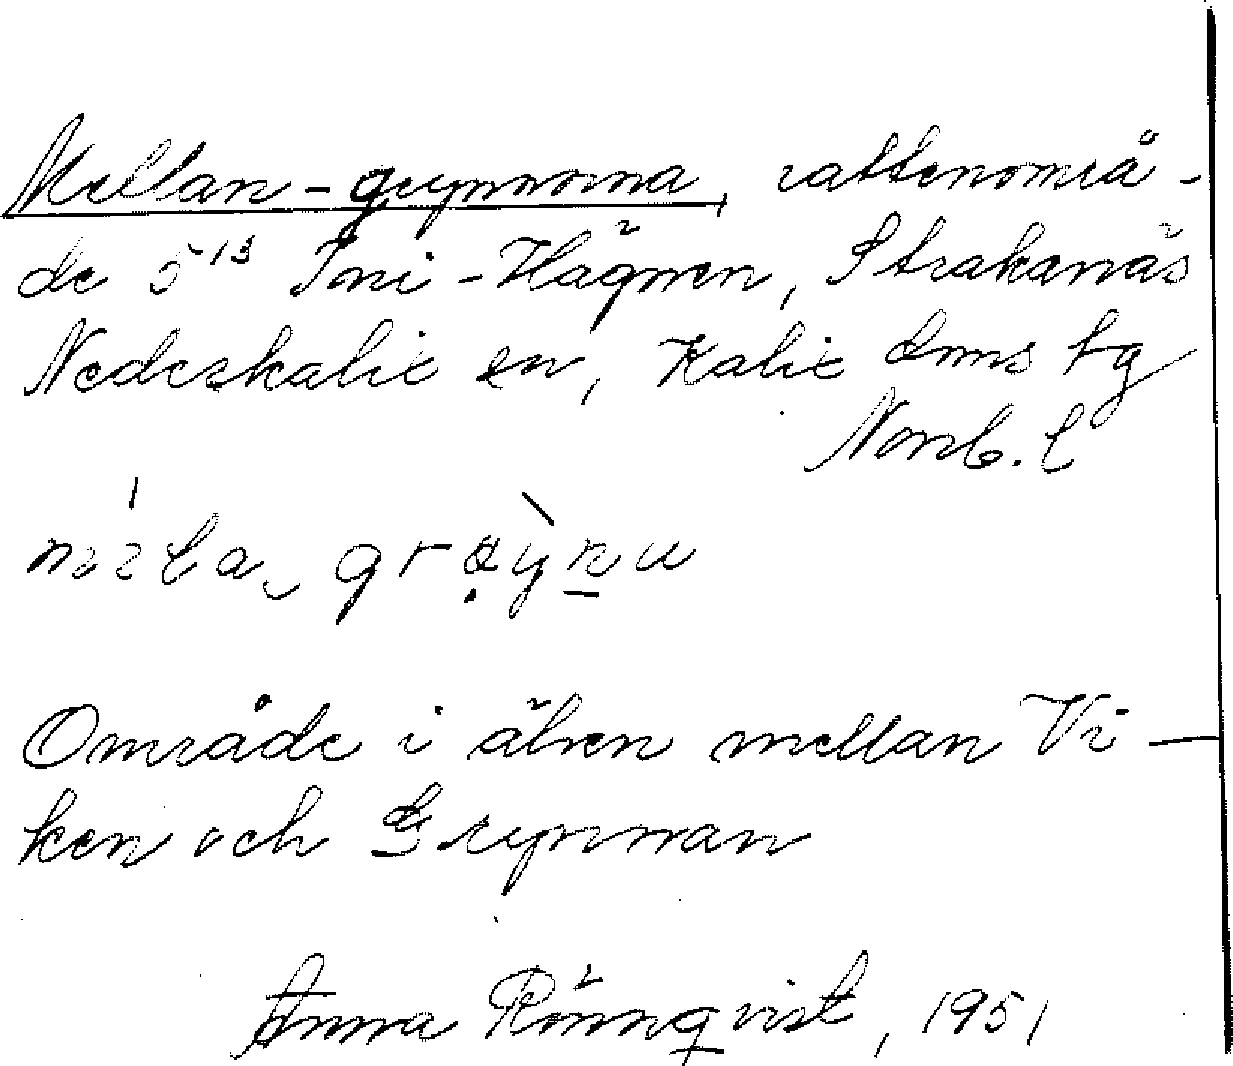 Mellan-grynnorna, vattenområ-
de 5¹³ Toni-Hägnen, Strakanäs
Nederkalix sn, Kalix doms tg
Norrb. l
Område i älven mellan Vi-
ken och Grynnan
Anna Rönnqvist, 1951